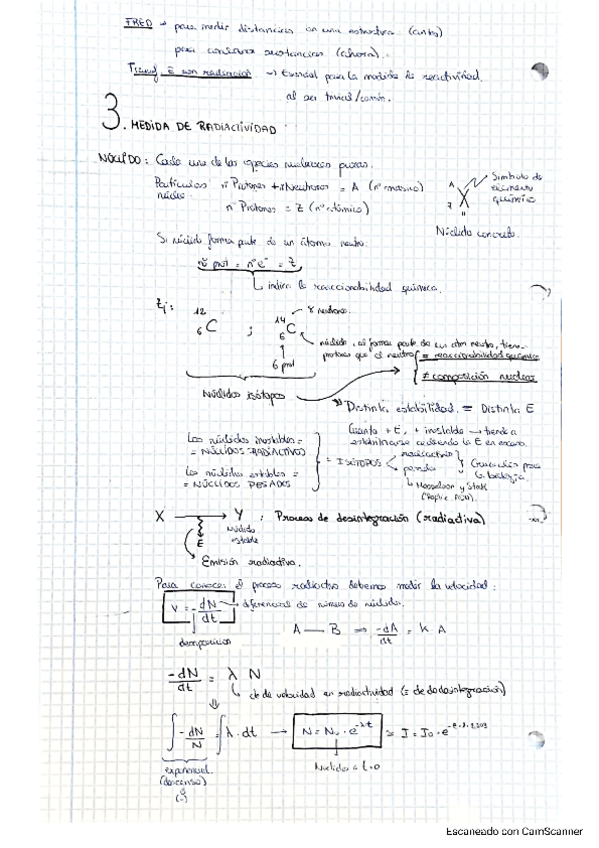 FRED → para medir distancias en una estructura (antes)
para conocer sustancias (ahora).
Transf. E con radiación → Esencial para la medida de reactividad
al ser trivial/común.
3. MEDIDA DE RADIACTIVIDAD
NÚCLIDO: Cada una de las especies nucleares puras.
Partículas nº Protones + nº Neutrones = A (nº másico)
núcleo
nº Protones = Z (nº atómico)
A
X
Z
n
Símbolo de
elemento
químico
Núclido concreto.
Si núclido forma parte de un átomo neutro:
nº prot = nº e⁻ = Z
indica la reaccionabilidad química.
Ej:
12
6 C ;
14
6 C
8 neutrones.
6 prot
núclido, al formar parte de un atm neutro, tiene
= reaccionabilidad química
≠ composición nuclear
Núclidos isótopos
Distinta estabilidad = Distinta E
Cuanta + E, + inestable → tiende a
estabilizarse cediendo la E en exceso.
Los núclidos inestables =
= NÚCLIDOS RADIACTIVOS
Los núclidos estables =
= NÚCLIDOS PESADOS
= ISÓTOPOS
radiactivos
pesados
Cruciales para
la biología.
Messelson y Stahl
X → Y : Proceso de desintegración (radiactiva)
E
Núclido
estable
Emisión radiactiva.
Para conocer el proceso radiactivo debemos medir la velocidad:
V = -dN/dt
diferencial de número de núclidos.
A — B ⇒ -dA/dt = K·A
-dN/dt = λ N
cte de velocidad en radiactividad (= cte de desintegración)
⇓
∫ -dN/N = ∫ λ·dt → N = N₀ · e^-λt
exponencial
(descenso)
(-)
Núclidos a t=0
Escaneado con CamScanner